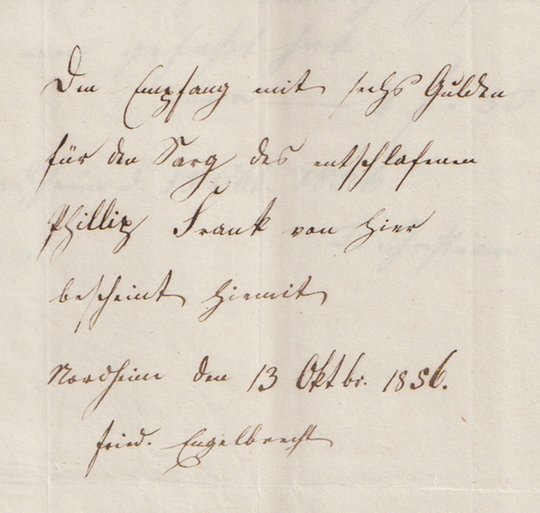 Den Empfang mit sechs Gulden
für den Sarg des entschlafenen
Phillip Frank von hier
bescheint hiemit
Nordheim den 13 Oktbr. 1856.
Fried. Engelbrecht